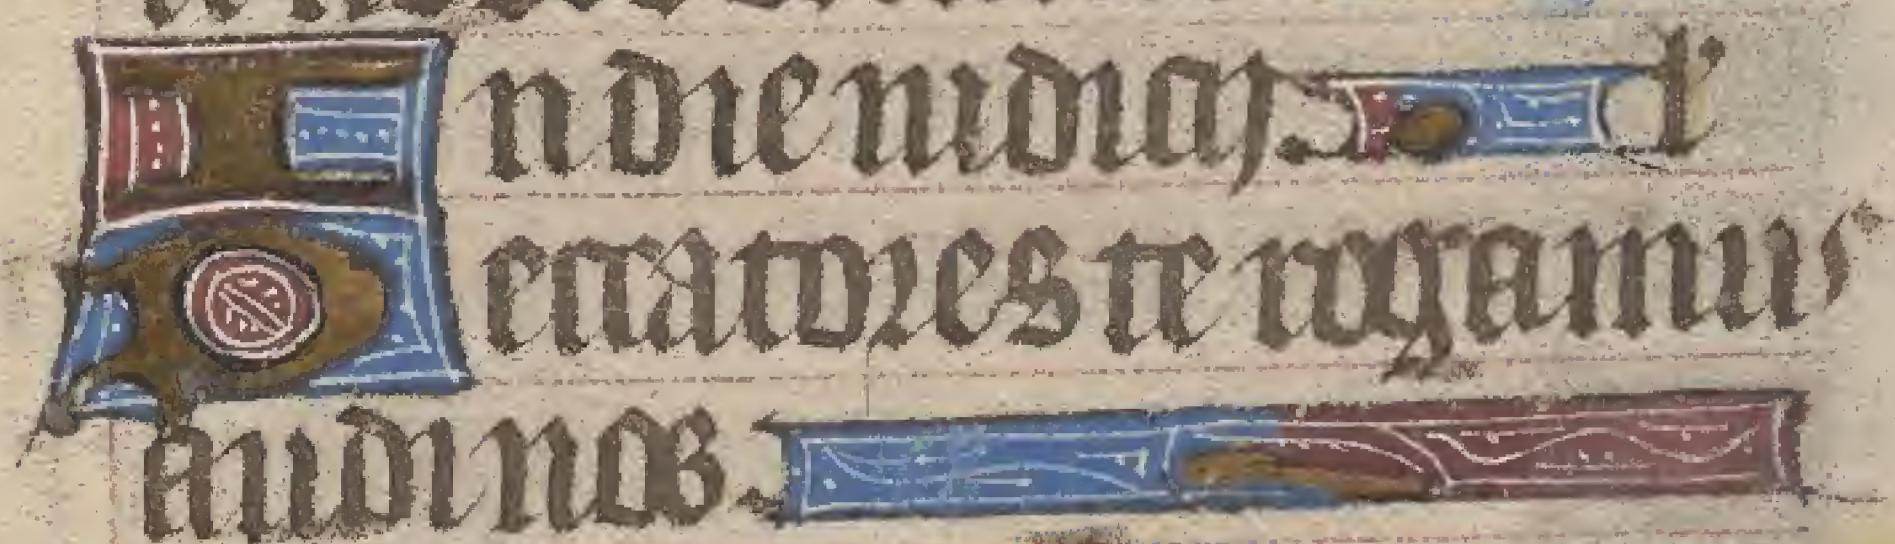 In die iudicij l'
Peccatores te rogamus
audi nos.